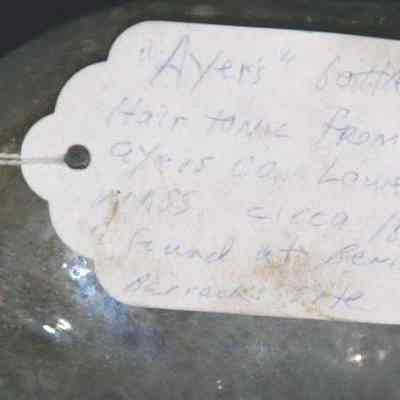 "Ayer's" bottl
Hair tonic from
Ayers Co. Low
Mass. circa 18
found at Beni
Barracks site